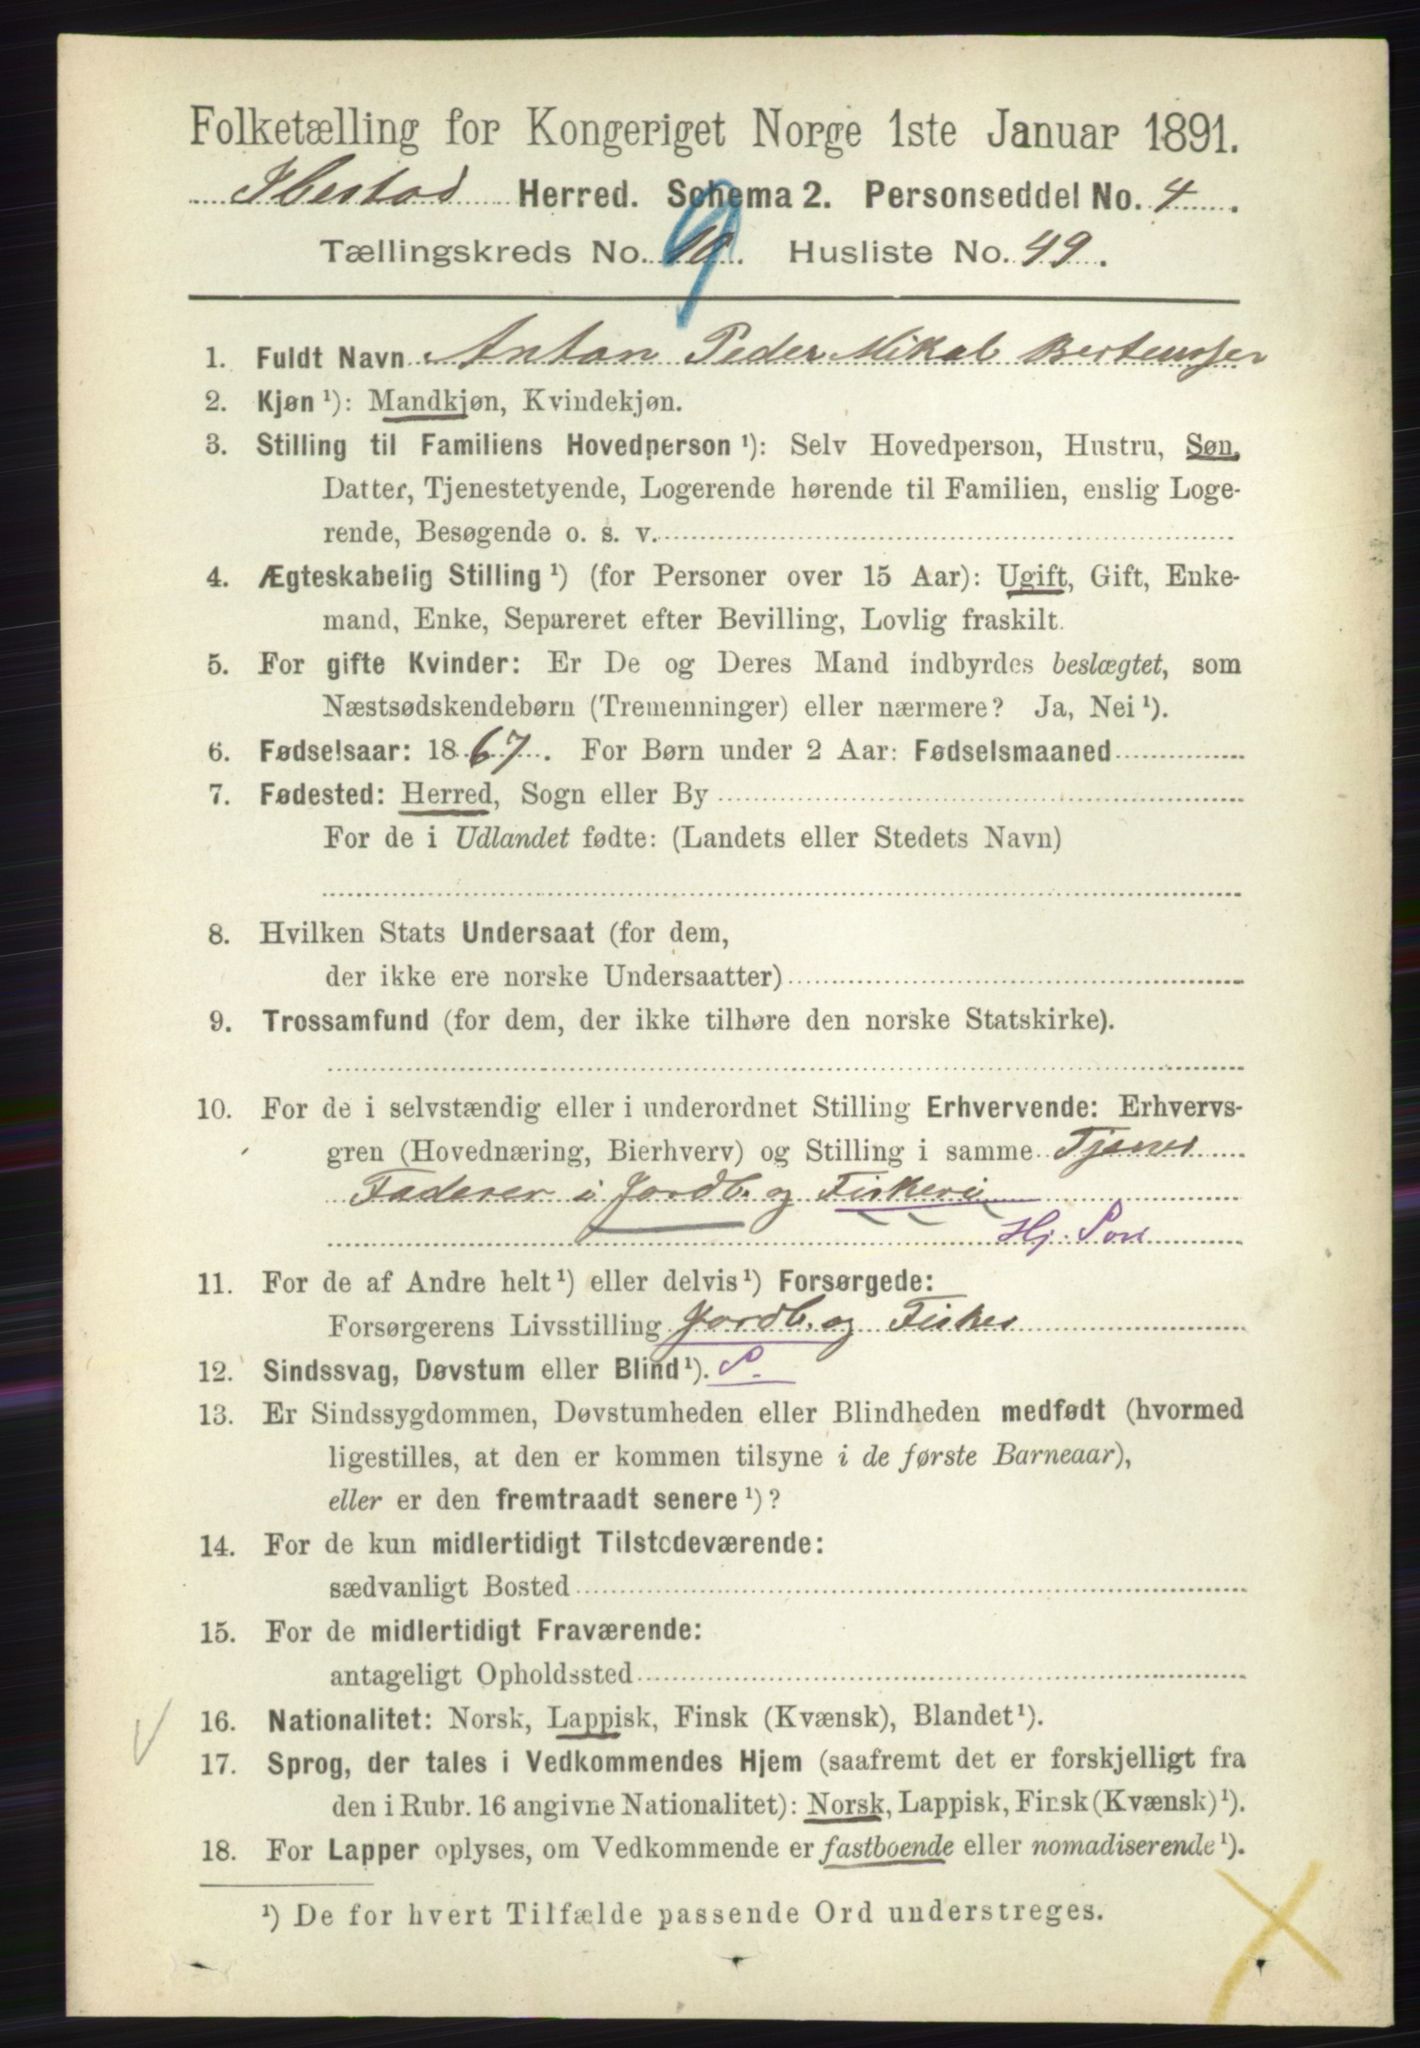 Folketælling for Kongeriget Norge 1ste Januar 1891.
Ibestad Herred. Schema 2. Personseddel No. 4.
Tællingskreds No. 10. 9 Husliste No. 49.
1. Fuldt Navn Anton Peder Mikal Berteussen
2. Kjøn ¹): Mandkjøn, Kvindekjøn.
3. Stilling til Familiens Hovedperson ¹): Selv Hovedperson, Hustru, Søn,
Datter, Tjenestetyende, Logerende hørende til Familien, enslig Loge-
rende, Besøgende o. s. v.
4. Ægteskabelig Stilling ¹) (for Personer over 15 Aar): Ugift, Gift, Enke-
mand, Enke, Separeret efter Bevilling, Lovlig fraskilt.
5. For gifte Kvinder: Er De og Deres Mand indbyrdes beslægtet, som
Næstsødskendebørn (Tremenninger) eller nærmere? Ja, Nei ¹).
6. Fødselsaar: 1867. For Børn under 2 Aar: Fødselsmaaned
7. Fødested: Herred, Sogn eller By
For de i Udlandet fødte: (Landets eller Stedets Navn)
8. Hvilken Stats Undersaat (for dem,
der ikke ere norske Undersaatter)
9. Trossamfund (for dem, der ikke tilhøre den norske Statskirke).
10. For de i selvstændig eller i underordnet Stilling Erhvervende: Erhvervs-
gren (Hovednæring, Bierhverv) og Stilling i samme Tjener
Faderen i Jordb. og Fiskeri
Hj. Søn
11. For de af Andre helt ¹) eller delvis ¹) Forsørgede:
Forsørgerens Livsstilling Jordb. og Fisker
12. Sindssvag, Døvstum eller Blind ¹). S.
13. Er Sindssygdommen, Døvstumheden eller Blindheden medfødt (hvormed
ligestilles, at den er kommen tilsyne i de første Barneaar),
eller er den fremtraadt senere ¹)?
14. For de kun midlertidigt Tilstedeværende:
sædvanligt Bosted
15. For de midlertidigt Fraværende:
antageligt Opholdssted
16. Nationalitet: Norsk, Lappisk, Finsk (Kvænsk), Blandet ¹).
17. Sprog, der tales i Vedkommendes Hjem (saafremt det er forskjelligt fra
den i Rubr. 16 angivne Nationalitet): Norsk, Lappisk, Finsk (Kvænsk) ¹).
18. For Lapper oplyses, om Vedkommende er fastboende eller nomadiserende ¹).
¹) De for hvert Tilfælde passende Ord understreges.